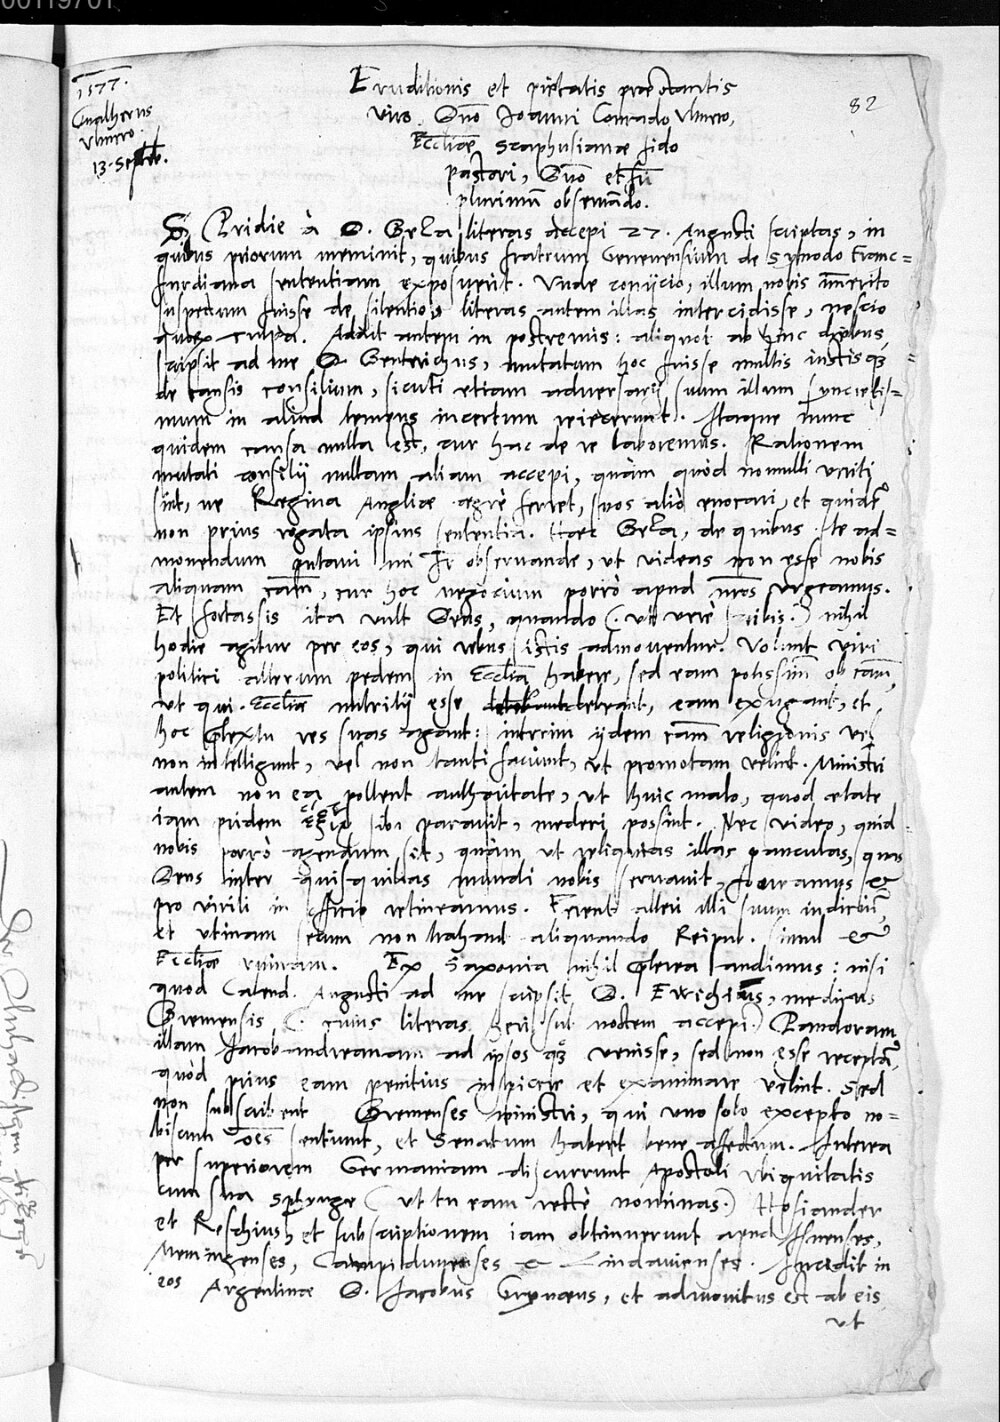 00119701
1577.
Gualherus
Ulmero.
13. Septeb.
82
Eruditionis et pietatis præstantis
viro, Dno Joanni Conrado Ulmero,
Eccliæ Scaphusianæ fido
pastori, Dno et fri
plurimum observando.
S. Pridie à D. Beza literas accepi 27. Augusti scriptas, in
quibus priorum meminit, quibus fratrum Genevensium de Synodo Franc=
furdiana sententiam exposuerit. Unde coniicio, illum nobis immerito
suspectum fuisse de silentio: literas autem illas intercidisse, nescio
qua culpa. Addit autem in postremis: aliquot ab hinc diebus
scripsit ad me D. Gentrichus, mutatum hoc fuisse multis iustisq3
de causis consilium, sicuti etiam adversarij suum illum syncretis=
mum in aliud tempus incertum reiecerunt. Itaque nunc
quidem causa nulla est, cur hac de re laboremus. Rationem
mutati consilij nullam aliam accepi, quàm quòd nonnulli veriti
sint, ne Regina Angliæ ægrè ferret, suos aliò evocari, et quidē
non prius rogata ipsius sententia. Hæc Beza, de quibus te ad=
monendum putavi mi fr observande, ut videas non esse nobis
aliquam cām, cur hoc negocium porrò apud nr̄os urgeamus.
Et fortassis ita vult Deus, quando (ut verè scribis) nihil
hodie agitur per eos, qui rebus istis admoventur. Volunt viri
politici alterum pedem in Ecclia habere, sed eam potissim̄ ob cām,
ut qui Eccliæ nutritij esse debebant, eam exugant, et
hoc prętextu res suas agant: interim ijdem cām religionis vel
non intelligunt, vel non tanti faciunt, ut promotam velint. Ministri
autem non ea pollent authoritate, ut huic malo, quod ætate
iam pridem sibi paravit, mederi possint. Nec video, quid
nobis porrò agendum sit, quàm ut reliquias illas pauculas, quas
Deus inter quisquilias mundi nobis servavit, foveamus &
pro virili in officio retineamus. Ferent alteri illi suum iudiciū,
et utinam secum non trahant aliquando Reipub. simul &
Eccliæ ruinam. Ex Saxonia nihil pręterea audimus: nisi
quod Calend. Augusti ad me scripsit D. Ewichius, medicus
Bremensis (cuius literas heri sub noctem accepi) Pandoram
illam Jacob-andreanam ad ipsos q3 venisse, sed non esse receptā,
quòd prius eam penitius inspicere et examinare velint. Sed
non subscribent Bremenses ministri, qui uno solo excepto no=
biscum oēs sentiunt, et Senatum habent bene affectum. Interea
per superiorem Germaniam discurrunt Apostoli Ubiquitatis
cum sua Sphynge (ut tu eam rectè nominas) Hosiander
et Reschius, et subscriptionem iam obtinuerunt apud Isnenses,
Memingenses, Campidunenses & Lindavienses. Incidit in
eos Argentinæ D. Jacobus Grynæus, et admonitus est ab eis
ut